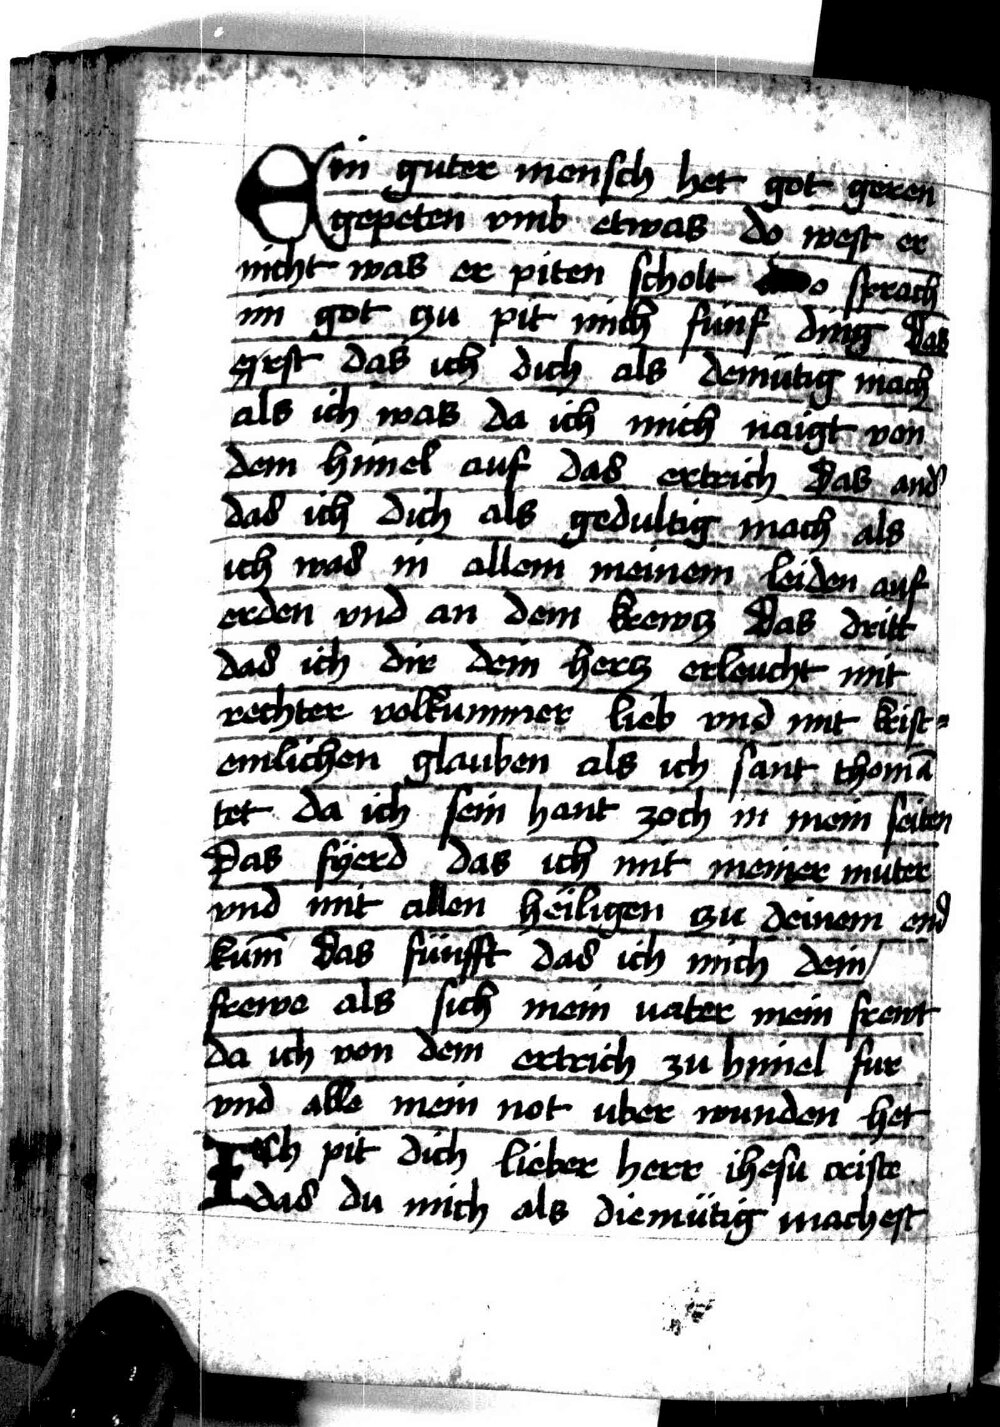 Ein guter mensch het got geren
gepeten vmb etwas do west er
nicht was er piten scholt do sprach
im got czu pit mich funf ding Das
erst das ich dich als demütig mach
als ich was da ich mich naigt von
dem himel auf das ertrich Das and
das ich dich als gedultig mach als
ich was in allem meinem leiden auf
erden vnd an dem krewcz Das dritt
das ich dir dein hercz erleucht mit
rechter volkummer lieb vnd mit krist=
enlichen glauben als ich sant thomā
tet da ich sein hant zoch in mein seiten
Das fÿerd das ich mit meiner muter
vnd mit allen heiligen czu deinem end
kum̄ Das fünfft das ich mich dein
frewe als sich mein uater mein frewt
da ich von dem ertrich zu himel fur
vnd alle mein not uber wunden het
Ich pit dich lieber herr ihesu criste
das du mich als diemütig machest